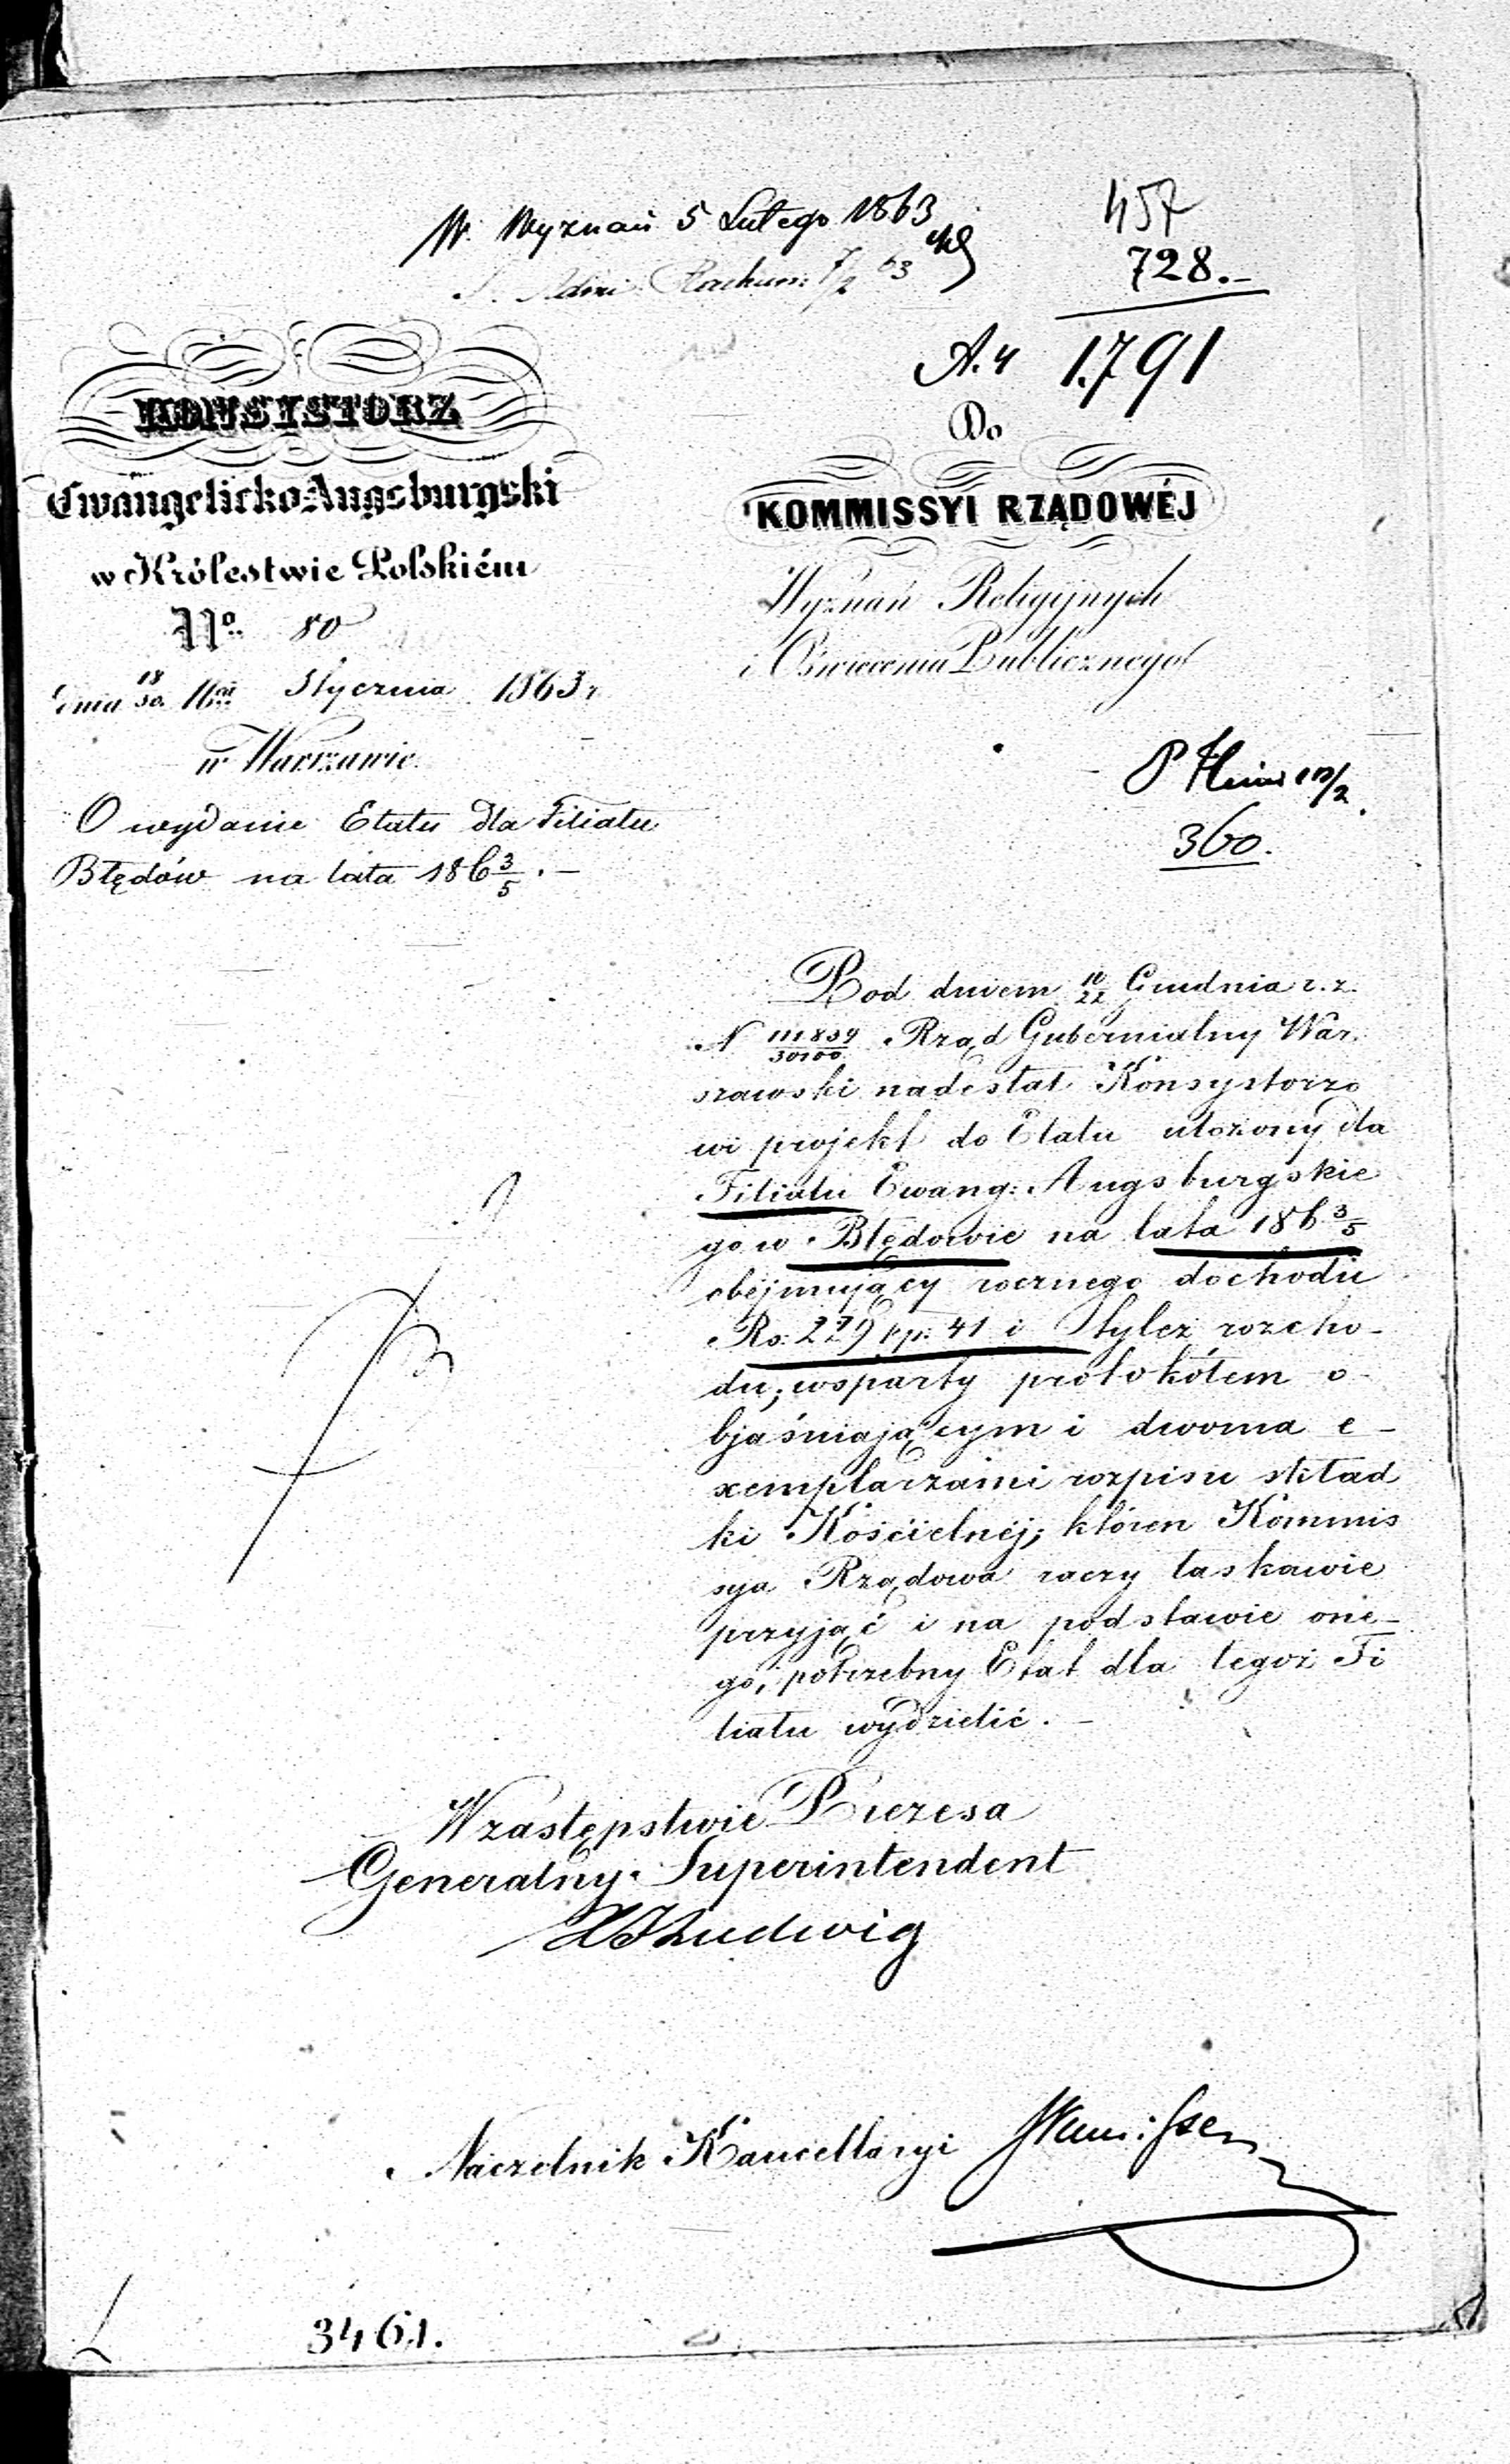 W. Wyznań 5 Lutego 1863
Rachun: 7/2 63
457
728.-
A. 4 1.791
KONSYSTORZ
Ewangelicko-Augsburgski
w Królestwie Polskiém
No. 80
dnia 18/30 Stycznia 1863 r
w Warszawie.
O wydanie Etatu dla Filiału
Błędów na lata 186 3/5. –
Do
KOMMISSYI RZĄDOWÉJ
Wyznań Religijnych
i Oświecenia Publicznego
360.
Pod dniem 10/22 Grudnia r. z.
N 111839/30100 Rząd Gubernialny War
szawski nadesłał Konsystorzo
wi projekt do Etatu ułożony dla
Filiału Ewang: Augsburgskie
go w Błędowie na lata 186 3/5
obejmujący rocznego dochodu
Rs: 229 kp: 41 i tyleż rozcho-
du, wsparty protokółem o-
bjaśniającym i dwoma e-
xemplarzami rozpisu skład
ki Kościelnéj, któren Kommis
sya Rządowa raczy łaskawie
przyjąć i na podstawie one-
go, potrzebny Etat dla tegoż Fi
liału wydzielić. –
W zastępstwie Prezesa
Generalny Superintendent
Ludwig
Naczelnik Kancellaryi
3461.